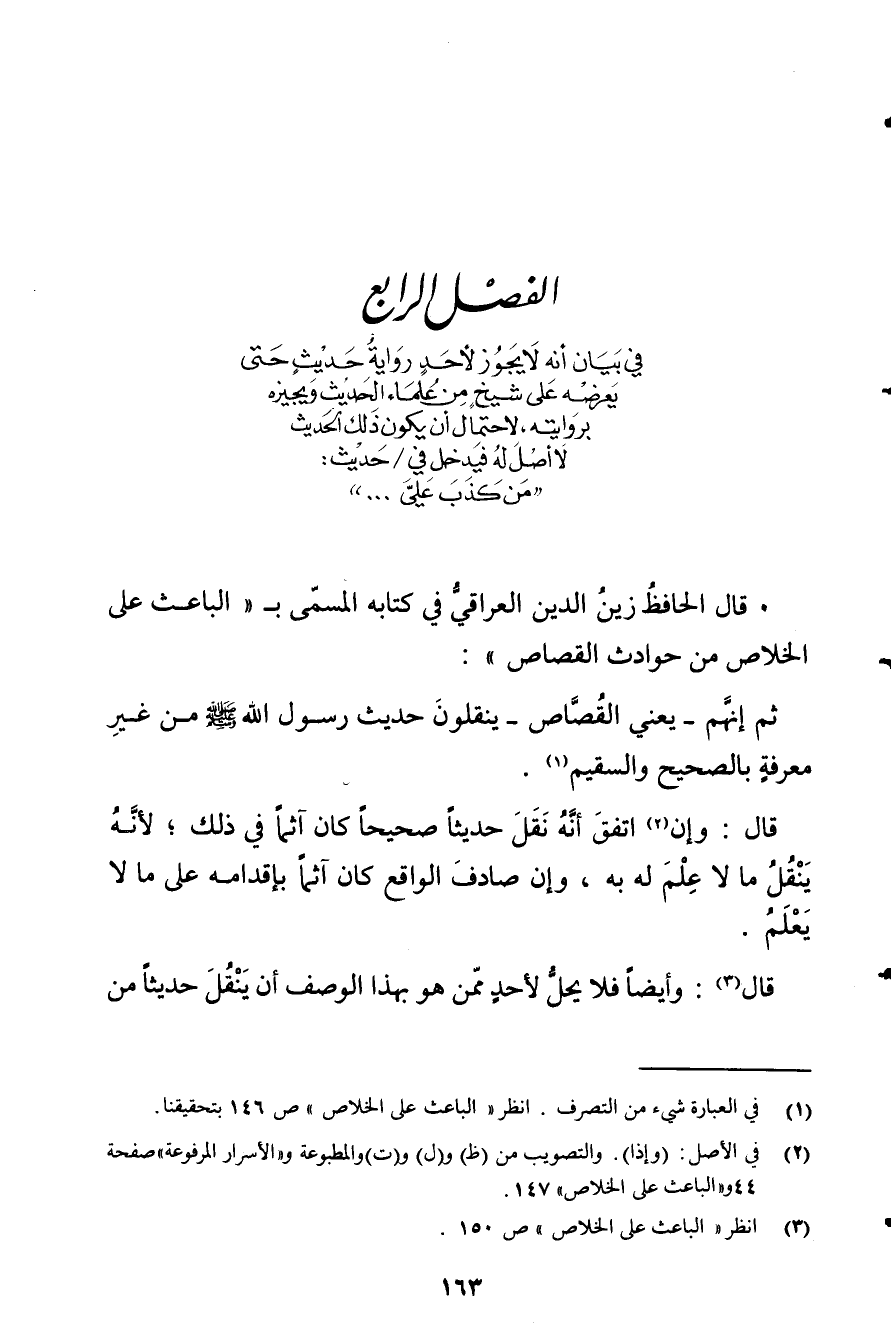 الفصل الرابع
في بَيَان أنه لَا يَجُوز لأحَدٍ روَايةُ حَديْثٍ حَتى
يَعرضْه عَلى شيخ مِن عُلمَاء الحَديْث وَيجيزه
بروَايته، لاحتمال أن يكون ذَلك الحَديث
لَا أصْل لهُ فيَدخل في / حَديْث :
«مَن كَذَبَ عَليَّ ...»
• قال الحافظُ زينُ الدين العراقيُّ في كتابه المسمّى بـ « الباعث على
الخلاص من حوادث القصاص » :
ثم إنَّهم ـ يعني القُصَّاص ـ ينقلونَ حديث رسول الله ﷺ من غيرِ
معرفةٍ بالصحيح والسقيم(١) .
قال : وإن(٢) اتفقَ أنَّهُ نَقَلَ حديثاً صحيحاً كان آثماً في ذلك ؛ لأنَّهُ
يَنْقُلُ ما لا عِلْمَ له به ، وإن صادفَ الواقع كان آثماً بإقدامه على ما لا
يَعْلَمُ .
قال(٣) : وأيضاً فلا يحلُّ لأحدٍ ممّن هو بهذا الوصف أن يَنْقُلَ حديثاً من
(١) في العبارة شيء من التصرف . انظر « الباعث على الخلاص » ص ١٤٦ بتحقيقنا.
(٢) في الأصل : (وإذا). والتصويب من (ظ) و(ل) و(ت)والمطبوعة و«الأسرار المرفوعة»صفحة
٤٤و«الباعث على الخلاص» ١٤٧.
(٣) انظر « الباعث على الخلاص » ص ١٥٠ .
١٦٣